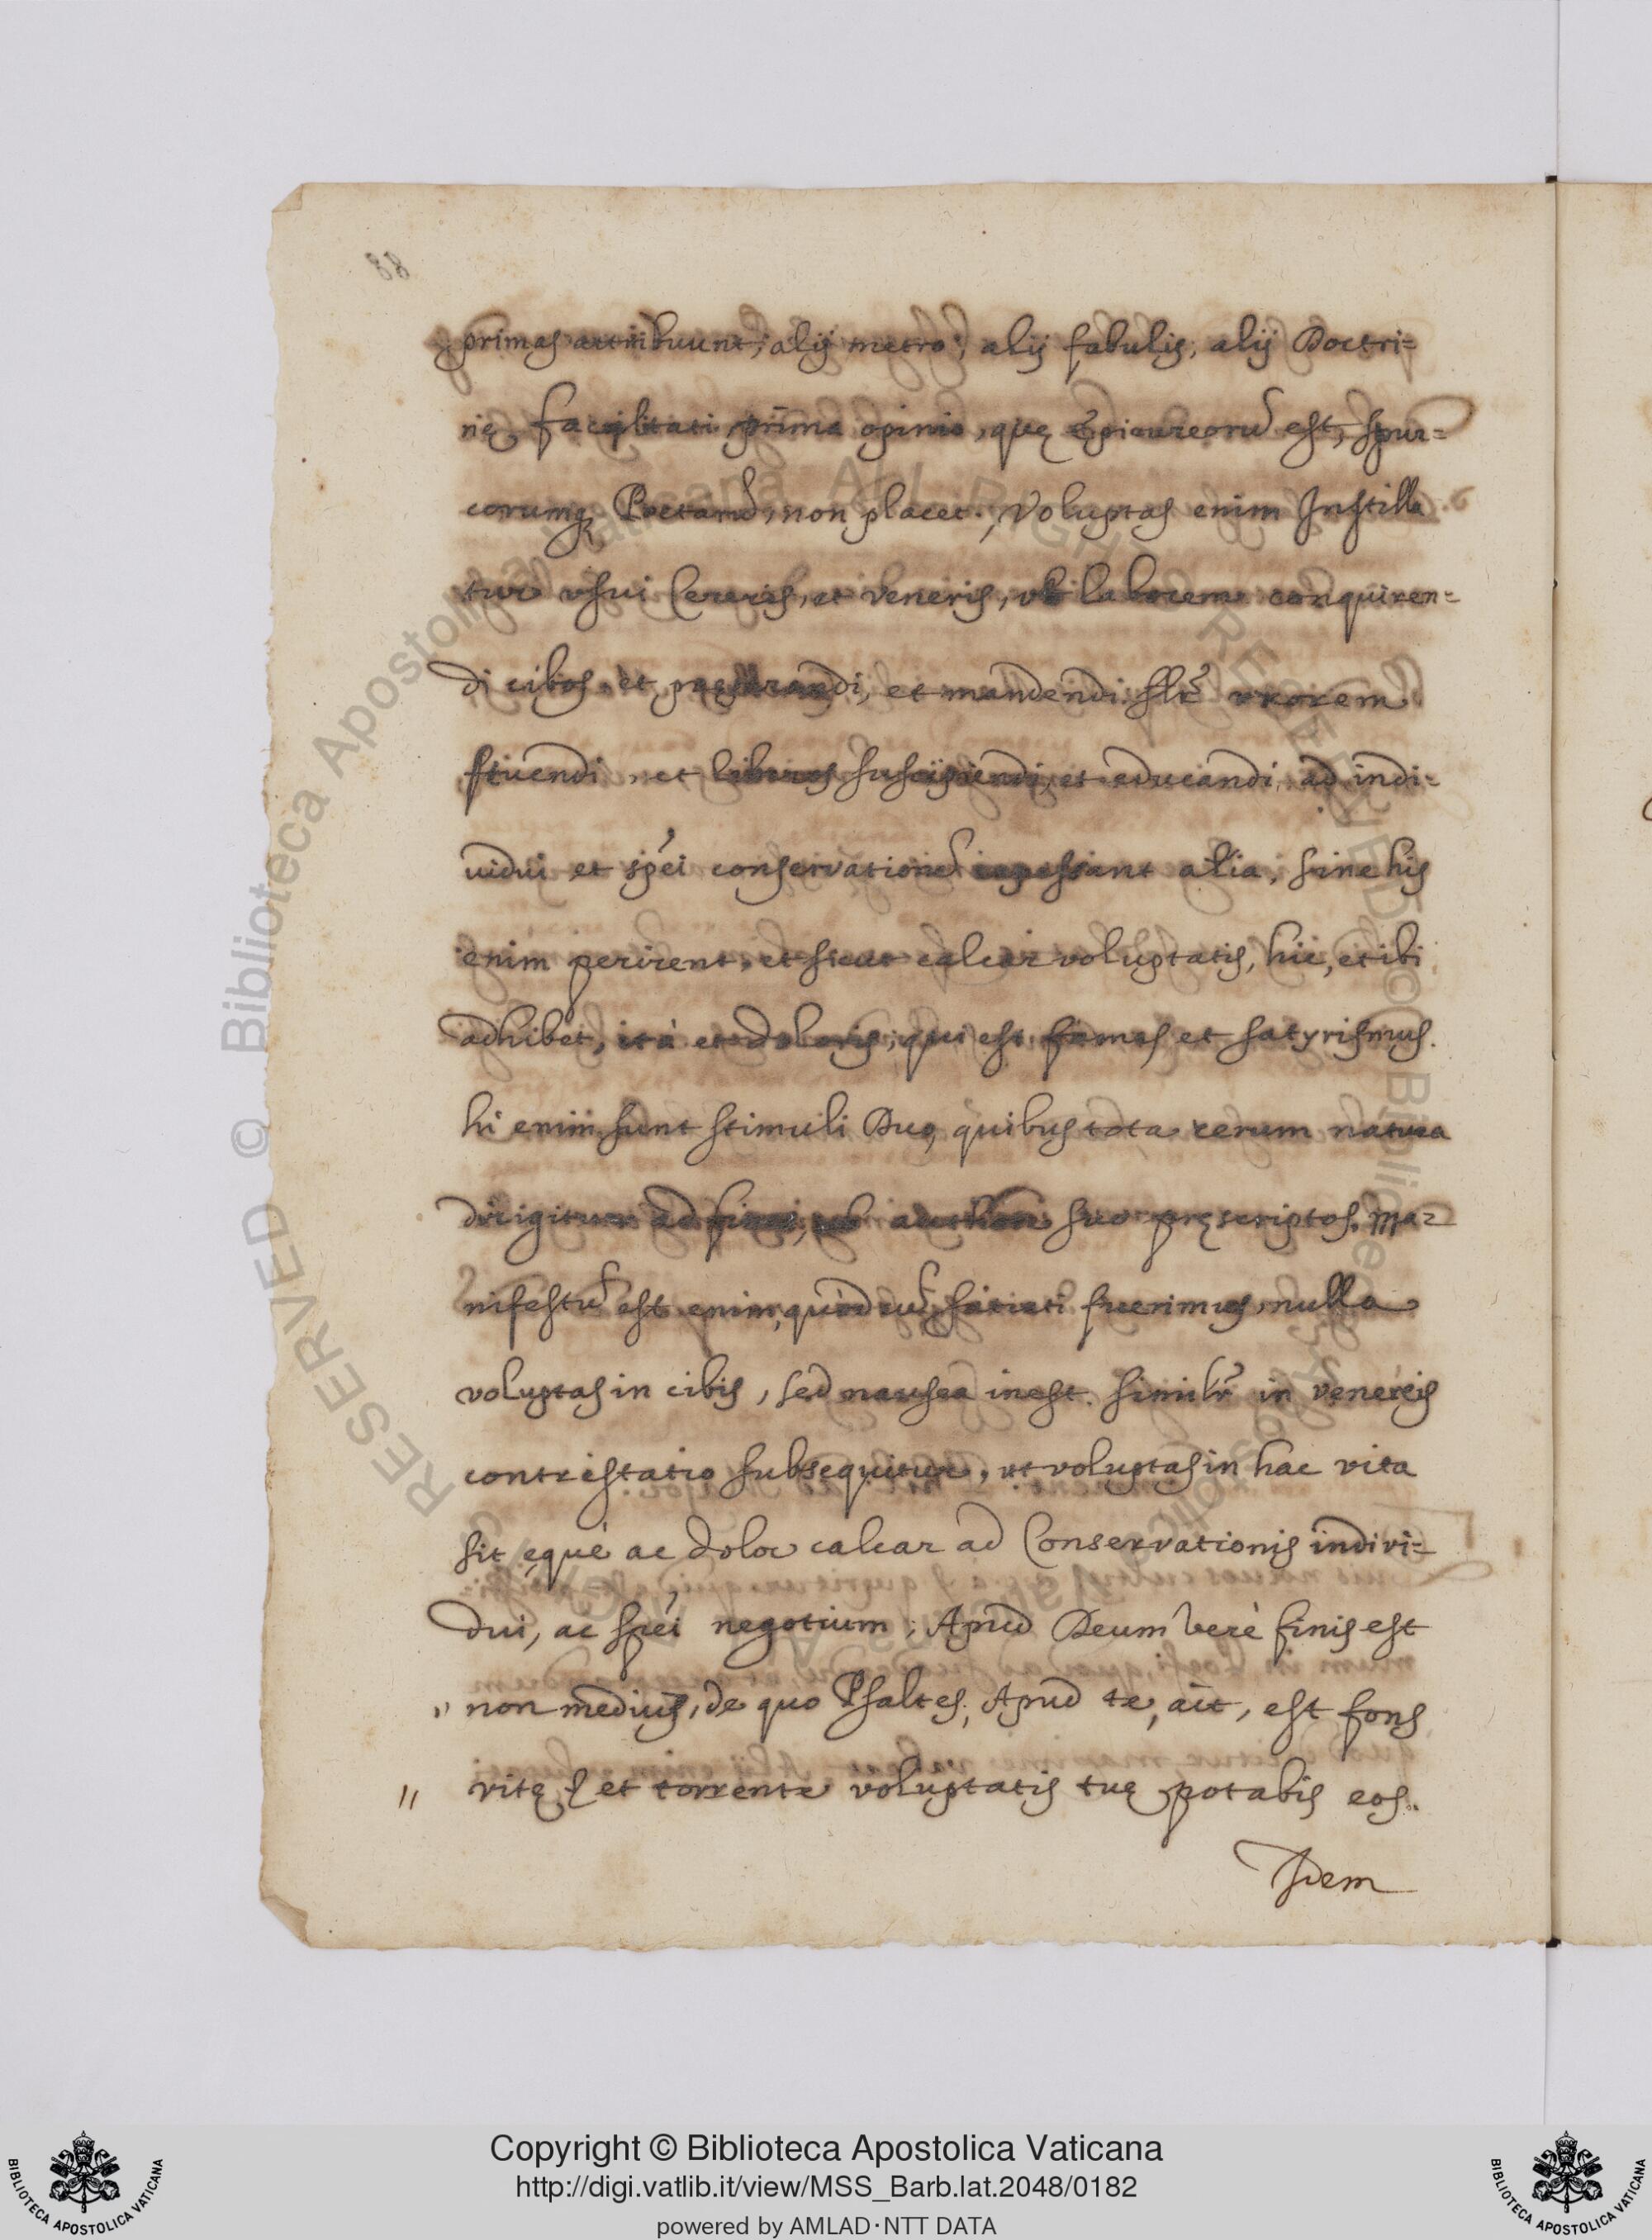 primas attribuunt; alij metro; alij fabulis, alij Doctri=
nę facilitati, prima opinio, quę Epicureorũ est, spur=
corumq Poetarũ, non placet. Voluptas enim Instilla
tur usui Cereris, et veneris, ob laborem conquiren=
di cibos, et parandi, et mandendi. slr̃ uxorem
, et liberos suscipiendi, et educandi, ad indi=
uidui et spéi conservationẽ alia, sine his
enim perirent, et sicut calcar voluptatis, hic, et ibi
adhibet, ità et doloris, qui est fames et satyrismus.
hi enim sunt stimuli Duo, quibus tota rerum natura
dirigitur ad fines, ab suo pręscriptos. Ma=
nifestũ est enim, quòd cũ satiati fuerimus, nulla
voluptas in cibis, sed nausea inest. similr̃ in venereis
contristatio subsequitur, ut voluptas in hac vita
sit ęquè ac dolor calcar ad Conservationis indivi=
dui, ac spéi negotium; Apud Deum verè finis est
" non medius, de quo Psaltes, Apud te, ait, est fons
" vitę, et torrente voluptatis tuę potabis eos.
Idem
Copyright © Biblioteca Apostolica Vaticana
http://digi.vatlib.it/view/MSS_Barb.lat.2048/0182
powered by AMLAD·NTT DATA
BIBLIOTECA APOSTOLICA VATICANA
BIBLIOTECA APOSTOLICA VATICANA